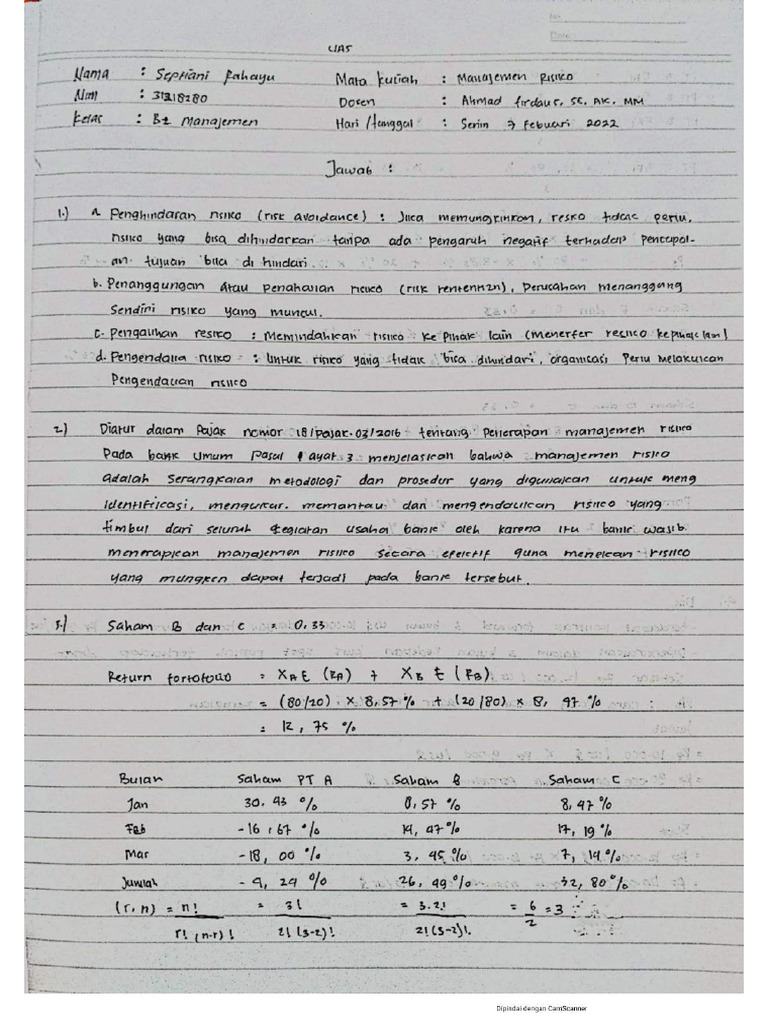 No.
Date
UAS
Nama : Septiani Rahayu Mata kuliah : Manajemen Risiko
Nim : 31318280 Dosen : Ahmad firdaus, SE, AK, MM
Kelas : B1 Manajemen Hari / tanggal : Senin 7 Febuari 2022
Jawab :
1.) a. Penghindaran risiko (risk avoidance) : Jika memungkinkan, resko tidak perlu,
risiko yang bisa dihindarkan tanpa ada pengaruh negatif terhadap pencapai-
an tujuan bila di hindari.
b. Penanggungan atau penahanan risiko (risk rentention), perusahan menanggung
sendiri risiko yang muncul.
c. Pengalihan resiko : Memindahkan risiko ke pihak lain (menerfer resiko kepihak lain)
d. Pengendalia risiko = : Untuk risiko yang tidak bisa dihindari, organisasi perlu melakukan
Pengendalian risiko
2.) Diatur dalam Pajak nomor 18/pajak.03/2016 tentang Penerapan manajemen risiko
Pada bank umum pasal 1 ayat 3 menjelaskan bahwa manajemen risiko
adalah serangkaian metodologi dan prosedur yang digunakan untuk meng
identifikasi, mengukur. memantau dan mengendalikan risiko yang
timbul dari seluruh kegiatan usaha bank oleh karena itu bank wajib
menerapkan manajemen risiko secara efektif guna menekan risiko
yang mungken dapat terjadi pada bank tersebut.
3.) Saham B dan C = 0,33
Return fortofolio = XA E (RA) + XB E (RB)
= (80/20) × 8,57 % + (20/80) × 8, 47 %
= 12, 75 %
Bulan Saham PT A Saham B Saham C
Jan 30. 43 % 8,57 % 8, 47 %
Feb -16, 67 % 14, 47% 17, 19 %
Mar -18, 00 % 3, 45 % 7, 14 %
Jumlah -4, 24 % 26, 49 % 32, 80 %
(r, n) = n! = 3! = 3.2! = 6 = 3
r! (n-r)! 2! (3-2)! 2! (3-2)! 2
Dipindai dengan CamScanner